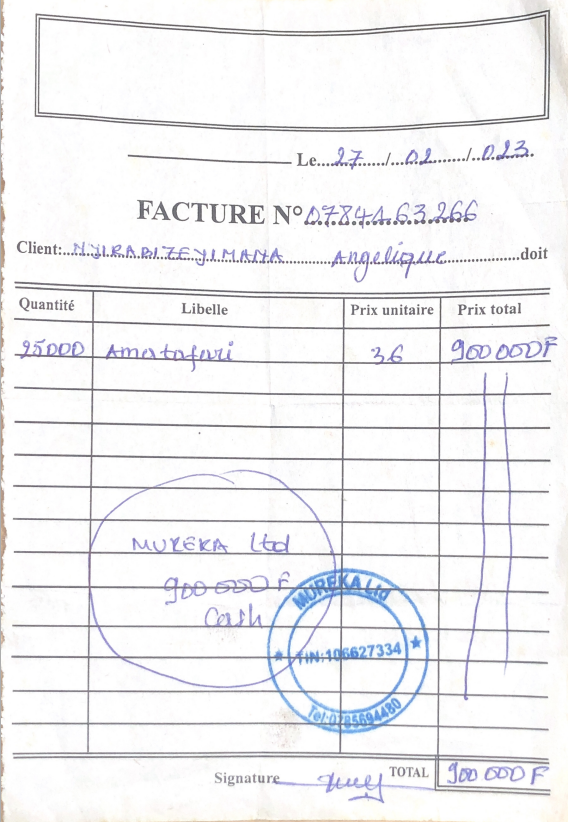 Le...27....../...02......../...023.
FACTURE N° 0784463266
Client: NYIRABIZEYIMANA Angelique doit
Quantité Libelle Prix unitaire Prix total
25000 Amatafari 36 900 000F
MUREKA Ltd
900 000 F
Cash
MUREKA Ltd
TIN:106627334
Tel:0785694480
Signature TOTAL 900 000 F